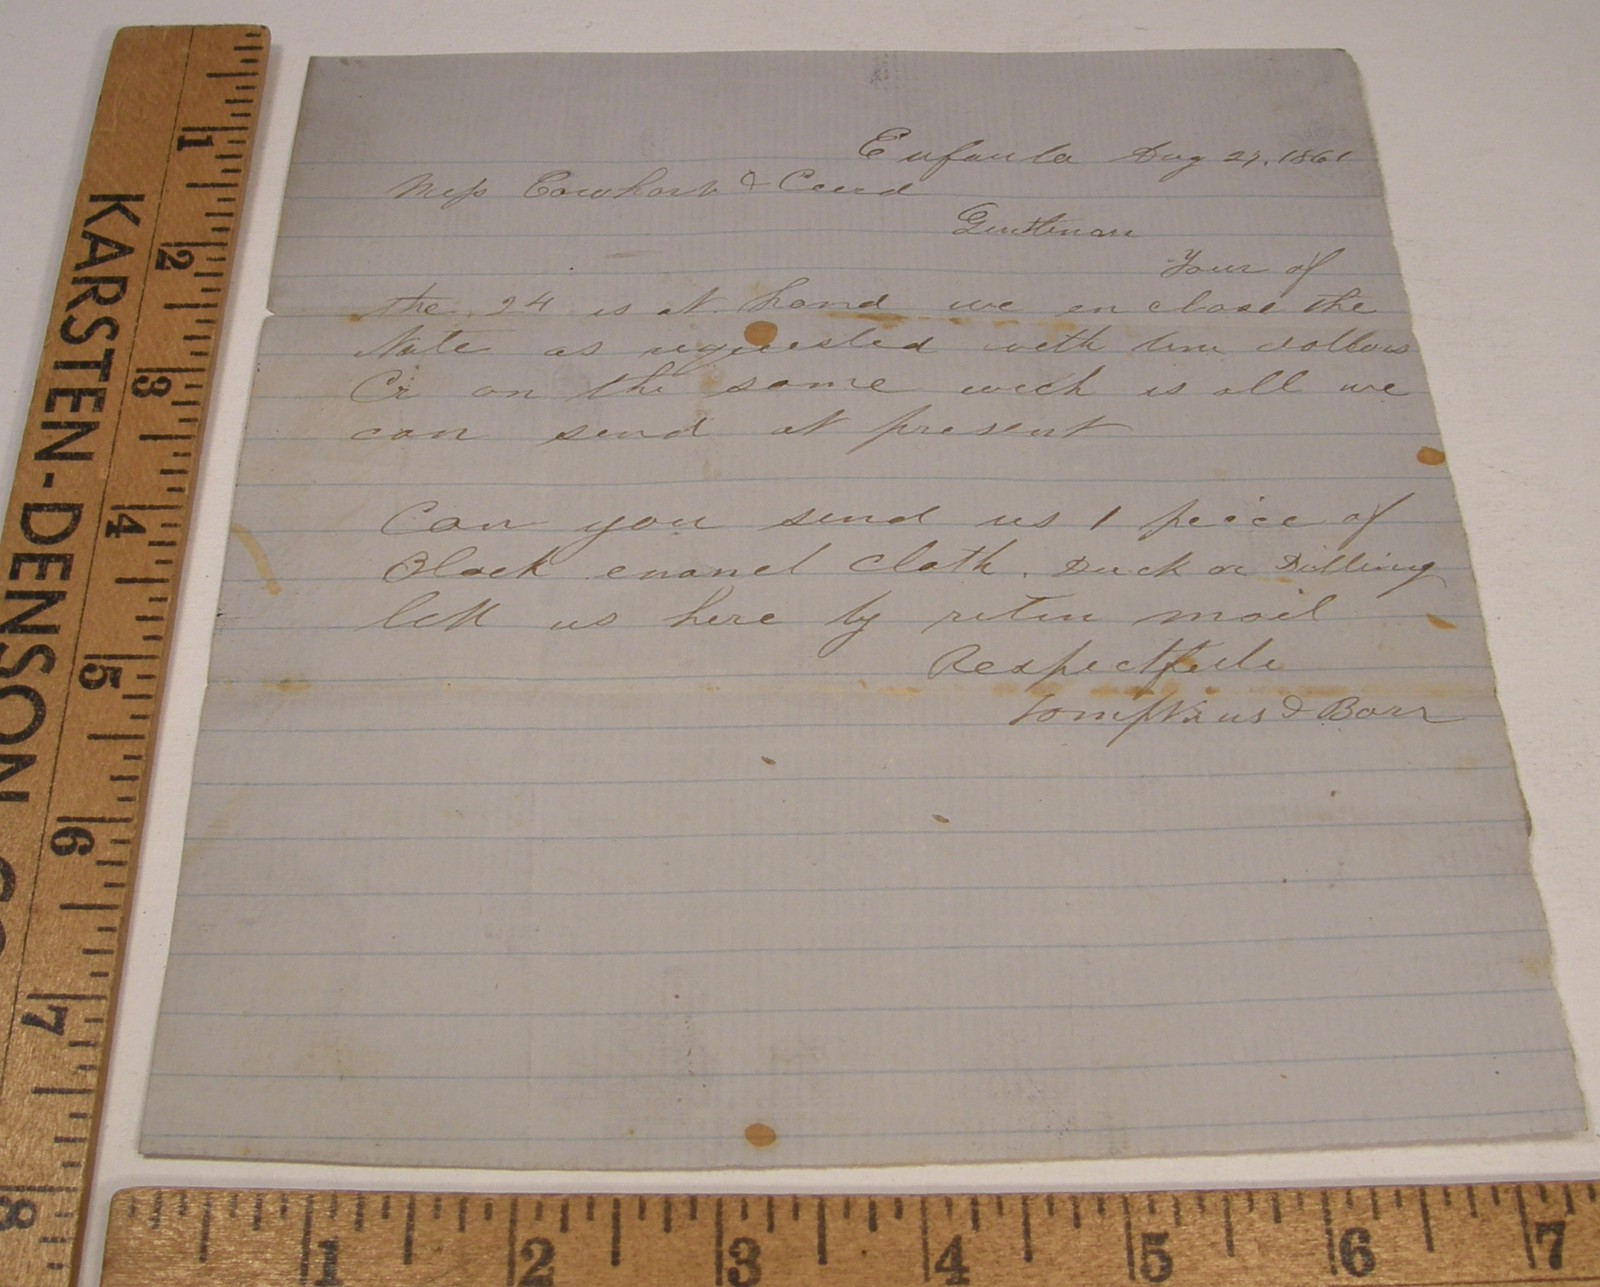 Eufaula Aug 27, 1861
Mess Cowhart & Ceud
Gentleman
Your of
the 24 is at hand we en close the
Note as requested with two dollars
Cr on the same wich is all we
can send at present
Can you send us 1 peice of
Black enamel Cloth. Duck or Drilling
lett us here by retun mail
Respectfule
Tompkins & Barr
KARSTEN-DENSON CO
1
2
3
4
5
6
7
8
1 2 3 4 5 6 7